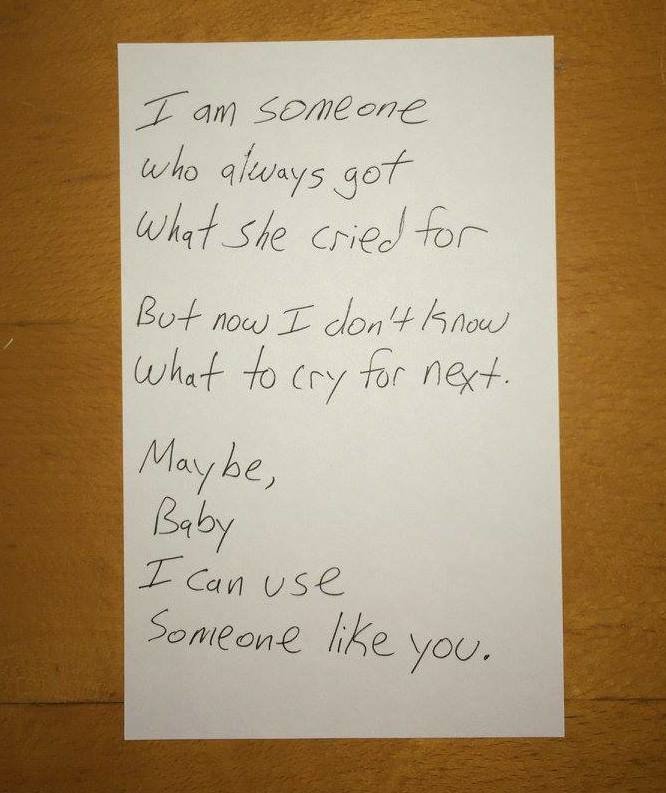 I am someone
who always got
what she cried for
But now I don't know
what to cry for next.
Maybe,
Baby
I can use
Someone like you.